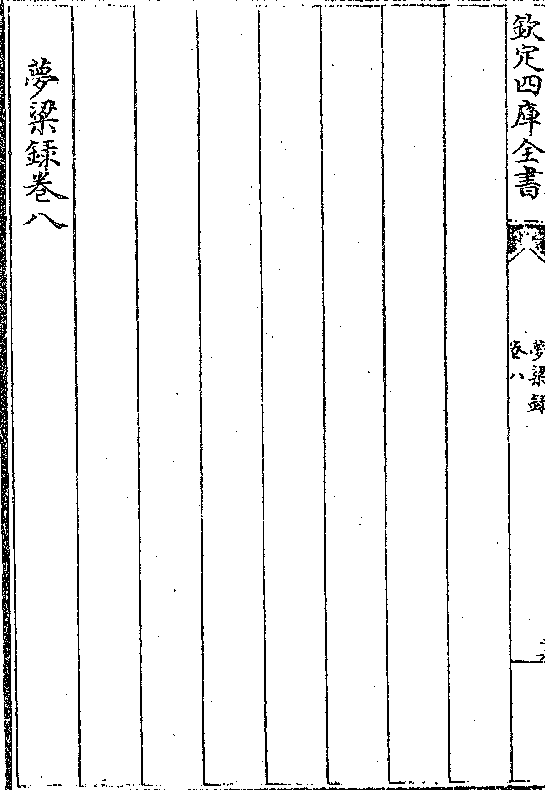 欽定四庫全書
夢粱録
卷八
夢粱録卷八